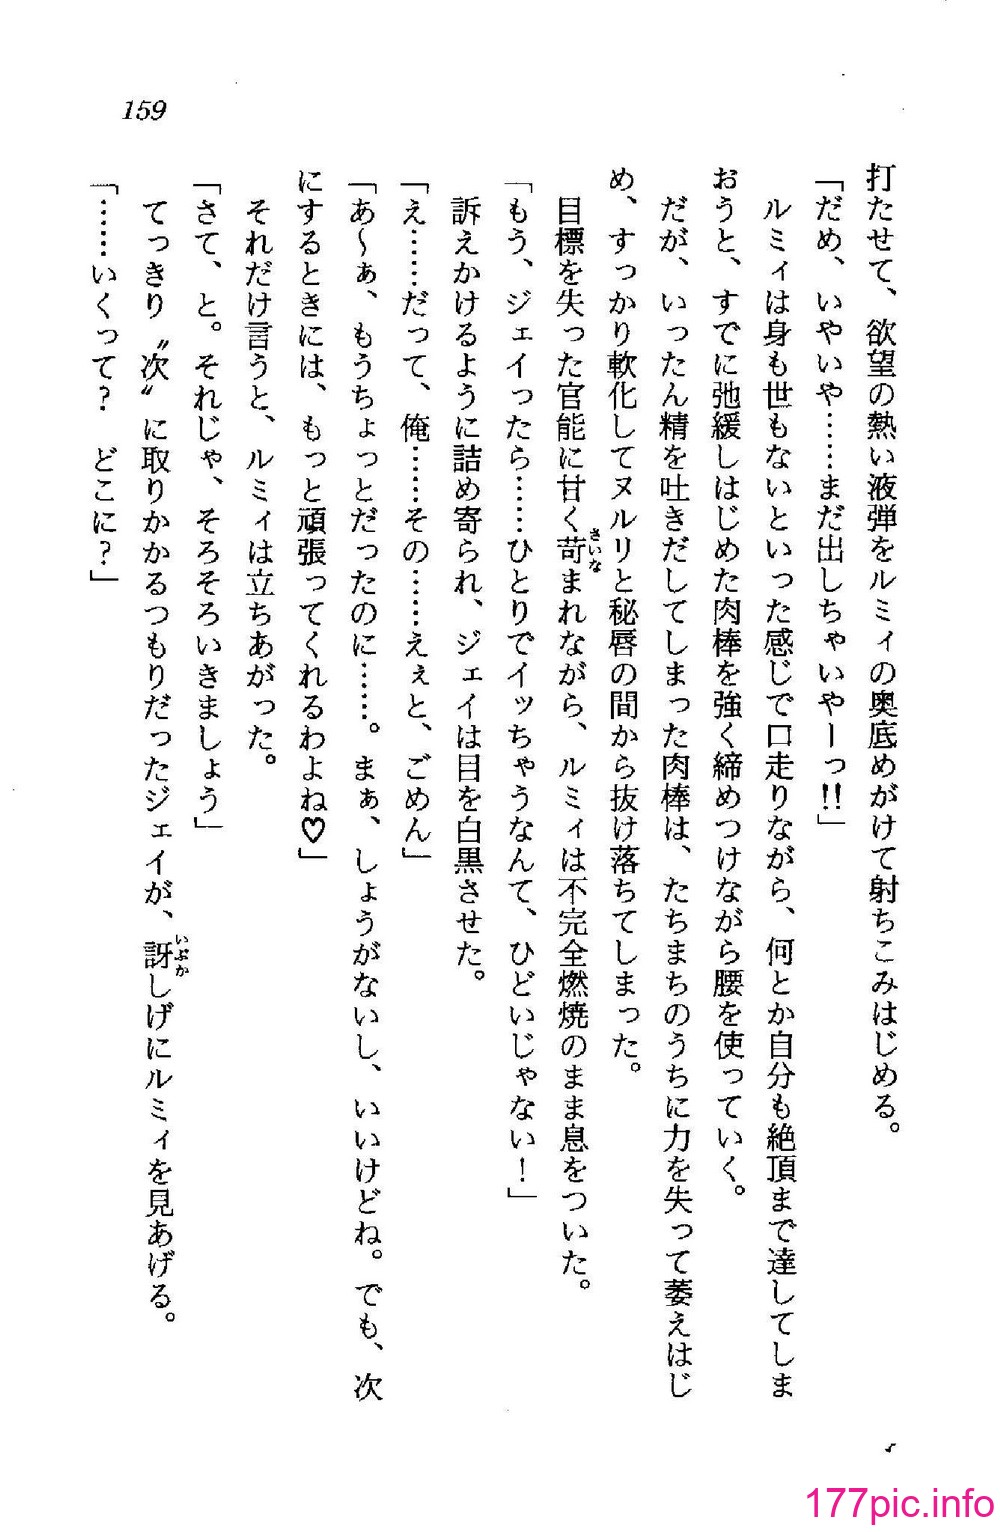 159
打たせて、欲望の熱い液弾をルミィの奥底めがけて射ちこみはじめる。
「だめ、いやいや……まだ出しちゃいやーっ!!」
ルミィは身も世もないといった感じで口走りながら、何とか自分も絶頂まで達してしま
おうと、すでに弛緩しはじめた肉棒を強く締めつけながら腰を使っていく。
だが、いったん精を吐きだしてしまった肉棒は、たちまちのうちに力を失って萎えはじ
め、すっかり軟化してヌルリと秘唇の間から抜け落ちてしまった。
目標を失った官能に甘く苛まれながら、ルミィは不完全燃焼のまま息をついた。
さいな
「もう、ジェイったら……ひとりでイッちゃうなんて、ひどいじゃない！」
訴えかけるように詰め寄られ、ジェイは目を白黒させた。
「え……だって、俺……その……えぇと、ごめん」
「あ〜ぁ、もうちょっとだったのに……。まぁ、しょうがないし、いいけどね。でも、次
にするときには、もっと頑張ってくれるわよね♡」
それだけ言うと、ルミィは立ちあがった。
「さて、と。それじゃ、そろそろいきましょう」
てっきり〝次〟に取りかかるつもりだったジェイが、訝しげにルミィを見あげる。
いぶか
「……いくって？　どこに？」
177pic.info